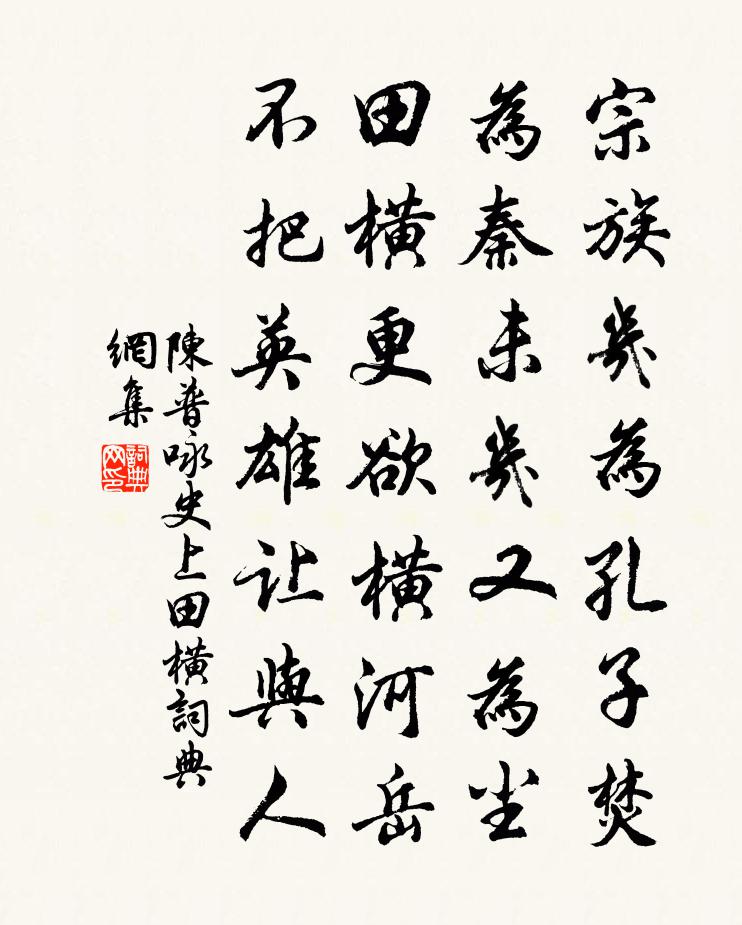 宗族幾為孔子焚
為秦未幾又為尘
田橫更欲橫河岳
不把英雄让與人
陳普咏史上田橫詞典
網集
詞典网印